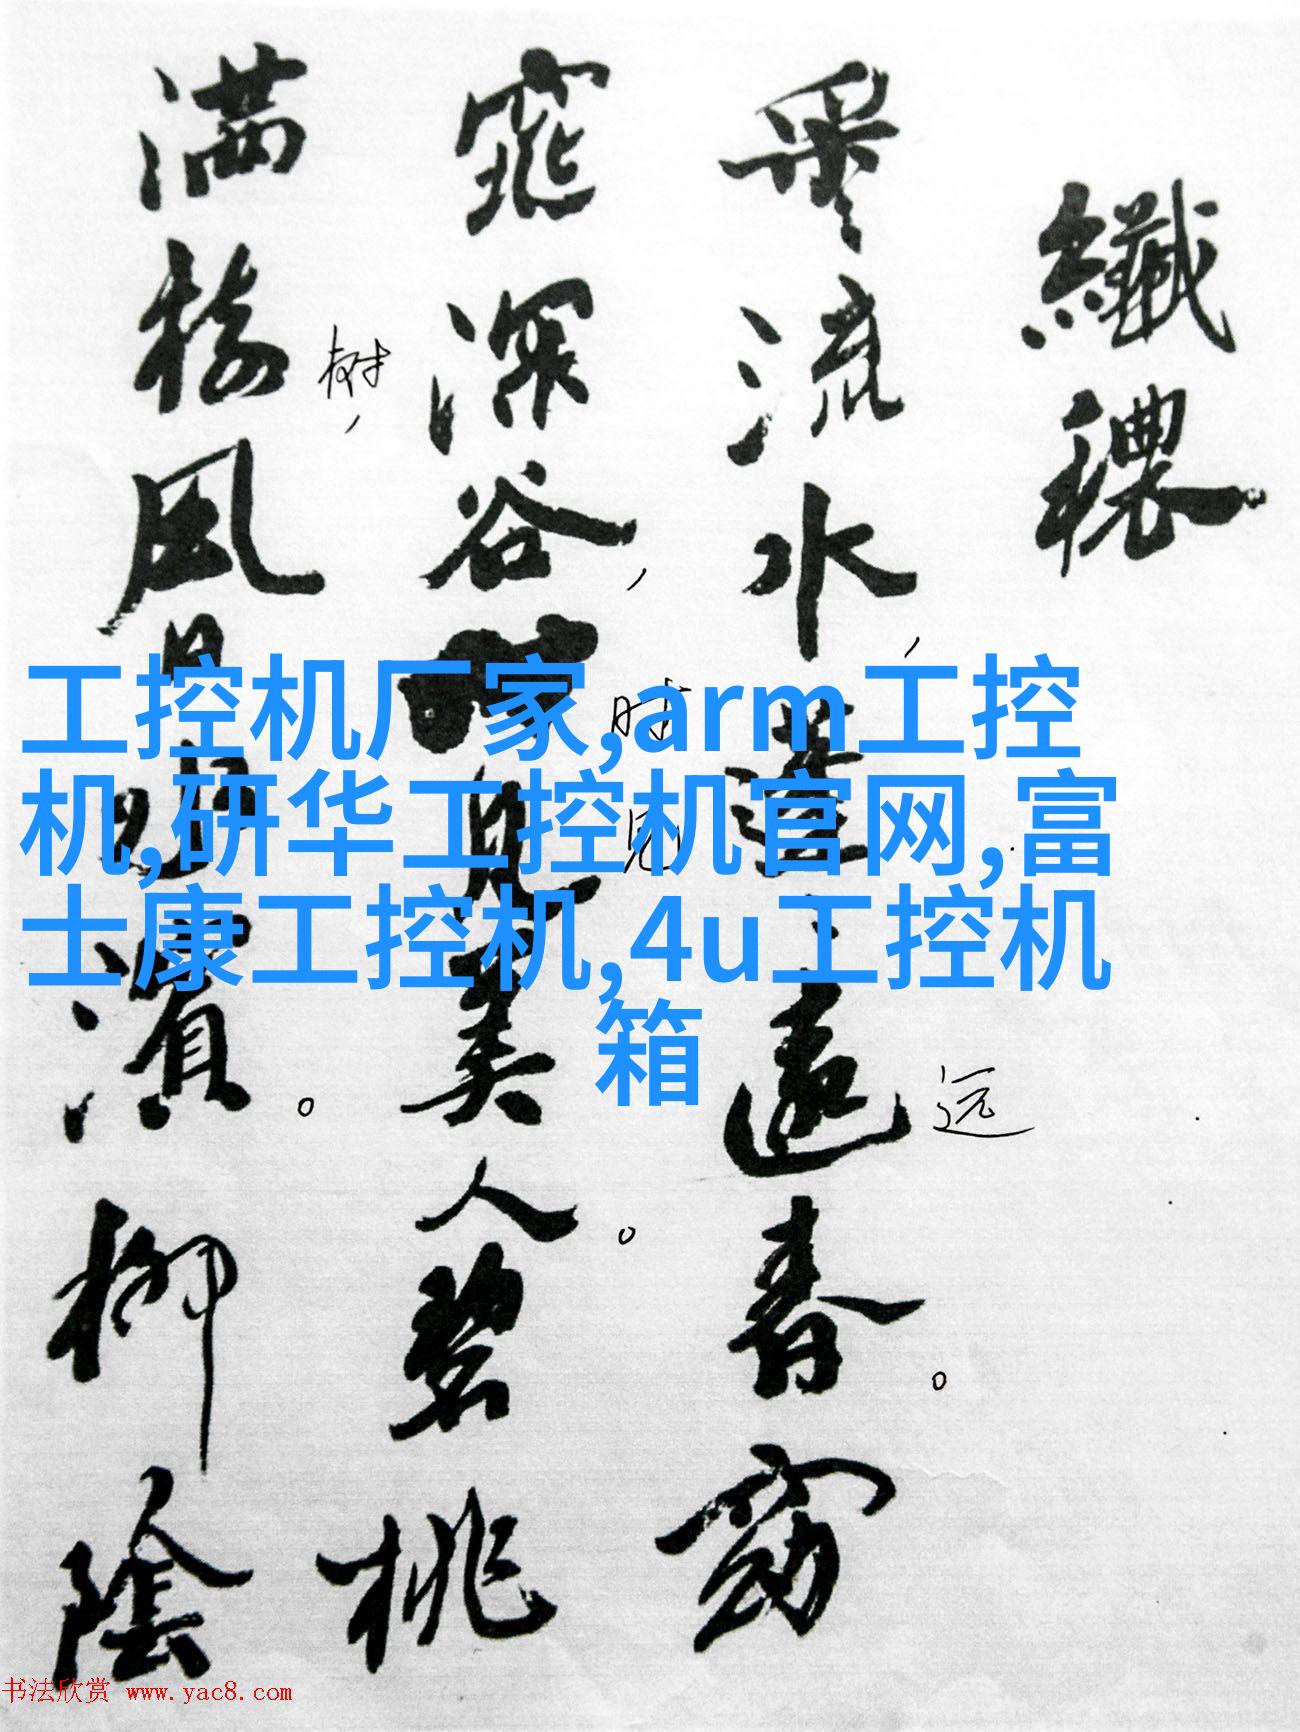 纖穠
采流水，蓬遠春。窈
远
窕深谷，見美人。碧桃
时见
满樹风日濱。柳陰
树，
工控机厂家,arm工控
机,研华工控机官网,富
士康工控机,4u工控机
箱
书法欣赏 www.yac8.com